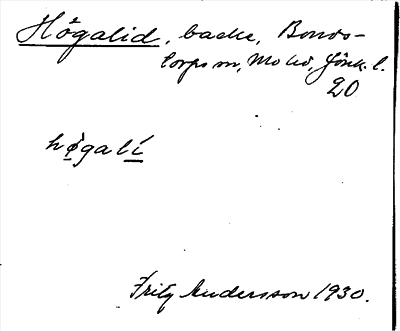 Högalid, backe, Bonds-
torps sn, Mo hd, Jönk. l.
20
høgalí
Fritz Andersson 1930.